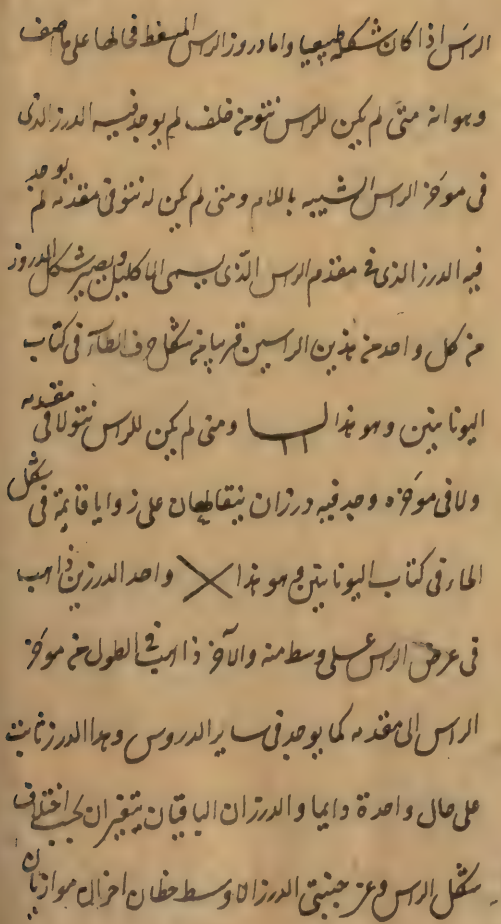 الراس اذا كان شكله طبيعيا واما دروز الراس المسفط فحالها على ما اصف
وهو انه متى لم يكن للراس نتو من خلف لم يوجد فيه الدرز الذى
فى موخر الراس الشبيه باللام ومتى لم يكن له نتو فى مقدمه لم يوجد
فيه الدرز الذى فى مقدم الراس الذى يسمى الاكليلى ويصير شكل الدروز
من كل واحد من هذين الراسين قريبا من شكل حرف الطآء فى كتاب
اليونانيين وهو هذا ومتى لم يكن للراس نتو لا فى مقدمه
ولا فى موخره وجد فيه درزان يتقاطعان على زوايا قايمة فى شكل
الخاء فى كتاب اليونانيين وهو هذا واحد الدرزين ذاهب
فى عرض الراس على وسط منه والآخر ذاهب فى الطول من موخر
الراس الى مقدمه كما يوجد فى ساير الدروس وهذا الدرز ثابت
على حال واحدة دايما والدرزان الباقيان يتغيران بحسب اختلاف
شكل الراس وعن جنبتى الدرز الاوسط خطان اخران موازيان